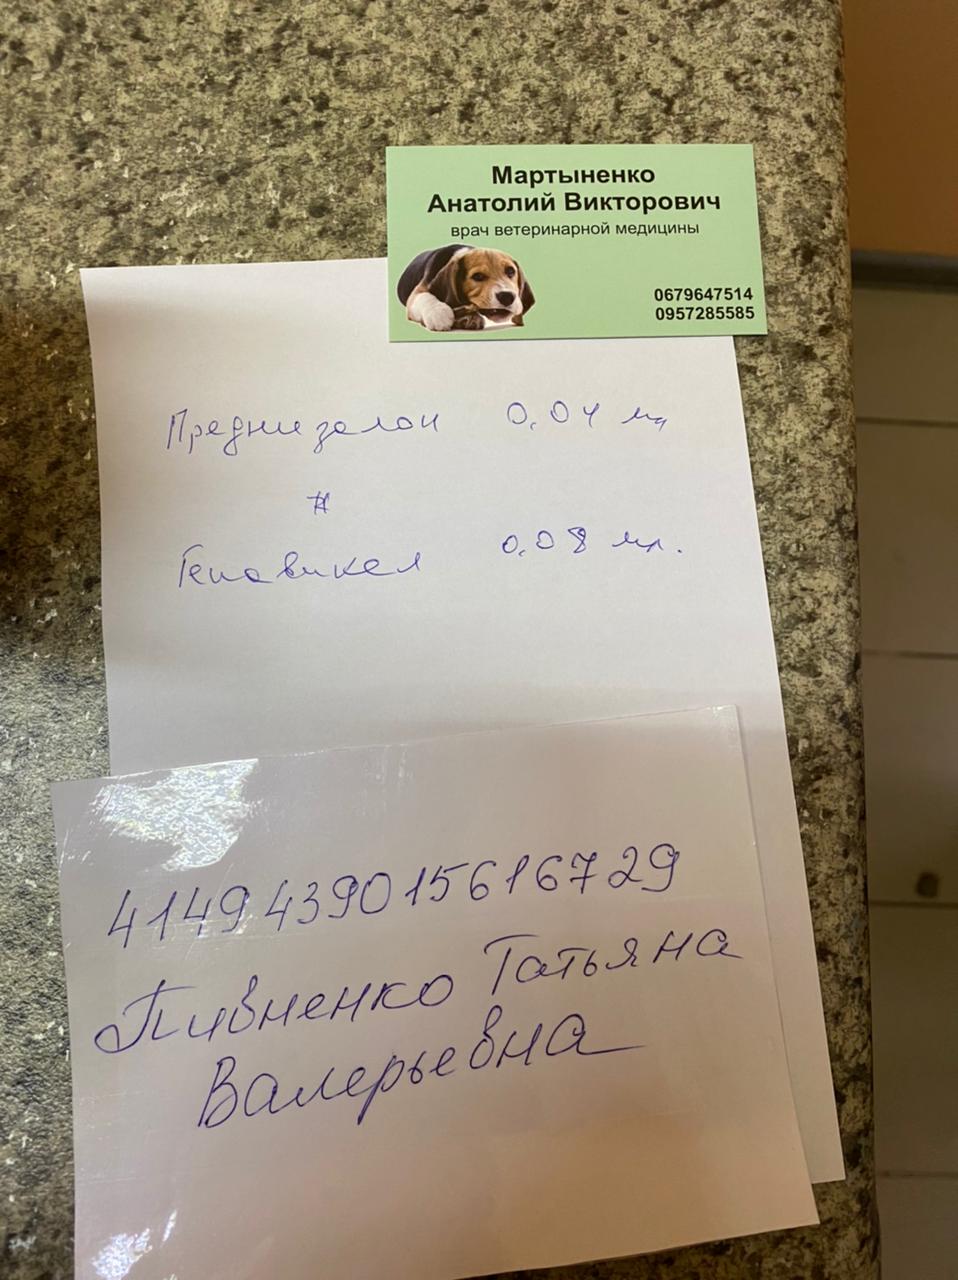 Мартыненко
Анатолий Викторович
врач ветеринарной медицины
0679647514
0957285585
Преднизалон 0,04 мл
#
Гепавикел 0,08 мл.
4149 4390 1561 6729
Пивненко Татьяна
Валерьевна